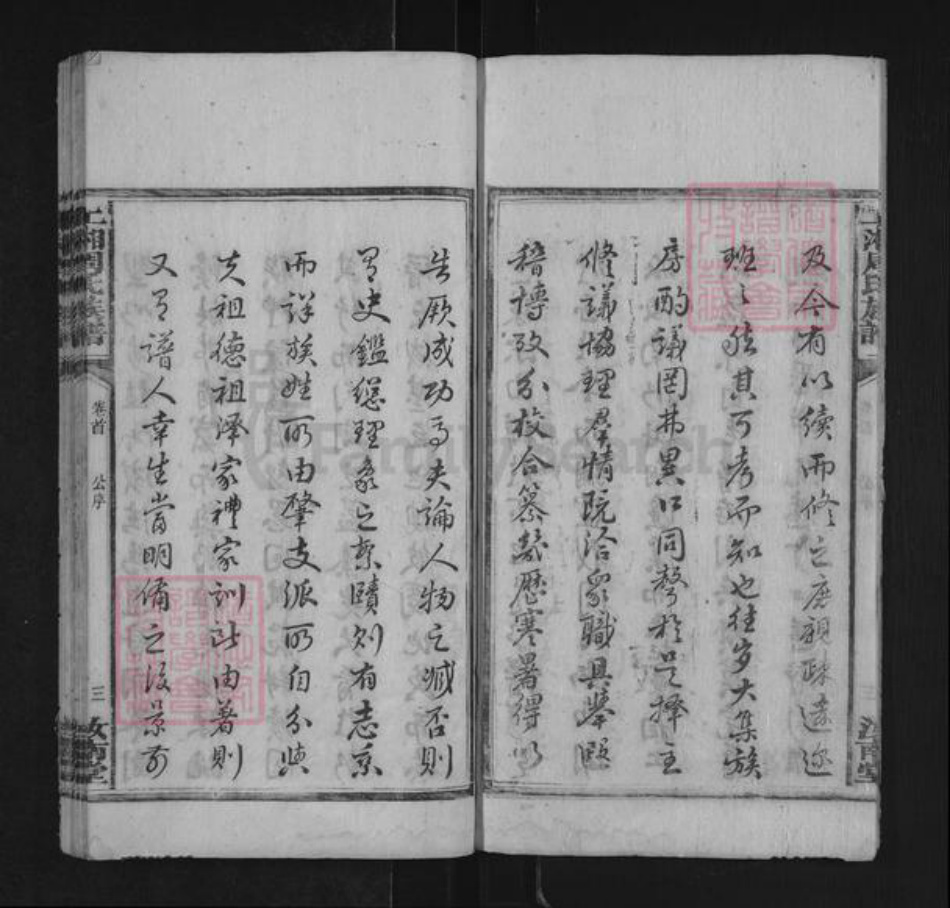 及今有以續而修之庶親疎遠邇
班班然其可考而知也往歲大集族
房酌議罔弗異口同聲於是擇主
修議協理群情既洽眾職具舉
稽博攷分校合纂幾歷寒暑得以
告厥成功焉夫論人物之臧否則
有史鑑總理象之繁賾則有志系
而詳族姓所由肇支派所自分與
夫祖德祖澤家禮家訓此由著則
又有譜人幸生當明備之後景前
上湘周氏族譜
卷首
公序
三
汝南堂
FamilySearch